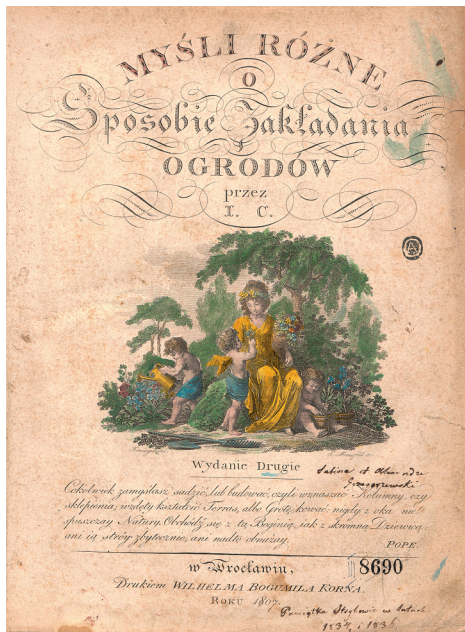 MYŚLI RÓŻNE
O
Sposobie Zakładania
OGRODÓW
przez
I. C.
Wydanie Drugie
Sabina et
Cokolwiek zamyślasz sadzić, lub budować, czyli wznaszać Kolumny, czy
sklepienia; wzdęty kształcić Terras, albo Grotę kować: nigdy z oka nie
opuszczay Natury. Obchódź się z tą Boginią, jak z skromną Dziewicą
ani ią stróy zbytecznie, ani nadto obnażay.
POPE.
w Wrocławiu,
8690
Drukiem WILHELMA BOGUMIŁA KORNA.
ROKU 1807.
Pamiątka w latach
1834 i 1836